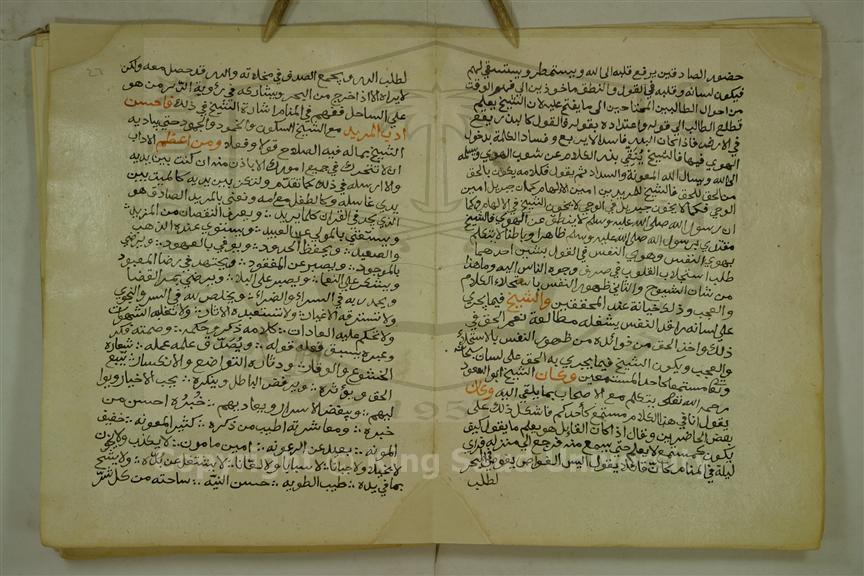 حضور الصادقين يرفع قلبه الى الله ويستمطر ويستسقي لهم
فيكون لسانه وقلبه في القول والنطق ماخوذين الى فهم الوقت
من احوال الطالبين المحتاجين الى ما يفتح عليه لان الشيخ يعلم
تطلع الطالب الى قوله واعتداده بقوله فالقول كالبذر يقع
في الارض فاذا كان البذر فاسدا لا يربع وفساد الكلمة بدخول
الهوى فيها فالشيخ يُنَقّي بذر الكلام عن شوب الهوى ويسلمه
الى الله ويسال الله المعونة والسداد ثم يقول فكلامه يكون بالحق
من الحق للحق فالشيخ للمريدين امين الالهام كما ان جبريل امين
الوحي فكما لا يخون جبريل في الوحي لا يخون الشيخ في الالهام وكما
ان رسول الله صلى الله عليه وسلم لا ينطق عن الهوى فالشيخ
مقتدي برسول الله صلى الله عليه وسلم ظاهرا وباطنا لا يتكلم
بهوى النفس وهوى النفس في القول بشيين احدهما
طلب استجلاب القلوب في صرف وجوه الناس اليه وما هذا
من شان الشيوخ والثاني ظهور النفس باستحلاء الكلام
والعجب وذلك خيانة عند المحققين والشيخ فيما يجري
على لسانه راقد النفس يشغله مطالعة نعم الحق في
ذلك فاقد الحظ من فوائده من ظهور النفس بالاستحلاء
والعجب ويكون الشيخ فيما يجريه الحق على لسانه
مستمعا كاحد المستمعين وكان الشيخ ابو السعود
رحمه الله تعالى يتكلم مع الاصحاب بما يلقى اليه وكان
يقول انا في هذا الكلام مستمع كاحدكم فاشكل ذلك على
بعض الحاضرين وقال اذا كان القايل هو يعلم ما يقول كيف
يكون كمستمع لا يعلم حتى يسمع منه فرجع الى منزله فرأى
ليلة في المنام كان قائلا يقول اليس الغواص يغوص في البحر
لطلب
لطلب الدر ويجمع الصدف في مخلاته والدر قد حصل معه ولكن
لا يراه الا اذا خرج من البحر ويشاركه في رؤية الدر من هو
على الساحل ففهم في المنام اشارة الشيخ في ذلك فاحسن
ادب المريد مع الشيخ السكوت والخمود والجمود حتى يباديه
الشيخ بما له فيه الصلاح قولا وفعلا ومن اعظم الاداب
ان لا تتحرك في جميع امورك الا باذن منه ان كنت بين يديه
والا ارسله في ذلك كما تقدم ولتكن بين يديه كالميت بين
يدي غاسله وكالطفل مع امه ونعني بالمريد الصادق هو
الذي يجد في القران كلما يريد ∴ ويعرف النقصان من المزيد
ويستغني بالمولى عن العبيد ∴ ويستوي عنده الذهب
والصعيد ∴ ويحفظ الحدود ∴ ويوفي بالعهود ∴ ويرضى
بالموجود ∴ ويصبر عن المفقود ∴ ويجتهد في رضا المعبود
ويشكر على النعما ∴ ويصبر على البلا ∴ ويرضى بمر القضا
ويحمد ربه في السراء والضراء ∴ ويخلص لله في السر والنجوى
ولا تسترقه الاغيار ∴ ولا تستعبده الاثار ∴ ولا تغلبه الشهوات
ولا تحكم عليه العادات ∴ كلامه ذكر وحكمه ∴ وصمته فكر
وعبره يسبق فعله قوله ∴ ويصدق علمه عمله ∴ شعاره
الخشوع والوقار ∴ ودثاره التواضع والانكسار يتبع
الحق ويؤثره ∴ ويرفض الباطل وينكره ∴ يحب الاخيار ويوا
ليهم ∴ ويبغض الاشرار ويعاديهم ∴ خُبْرُه احسن من
خبره ∴ ومعاشرته اطيب من ذكره ∴ كثير المعونه ∴ خفيف
المؤنه ∴ بعيد عن الرعونه ∴ امين مامون ∴ لا يكذب ولا يخون
لا بخيلا ولا جبانا ∴ لا سبابا ولا لعانا ∴ لا يشتغل عن بدّه ∴ ولا يشح
بما في يده ∴ طيب الطويه ∴ حسن النيّه ∴ ساحته من كل شرّ